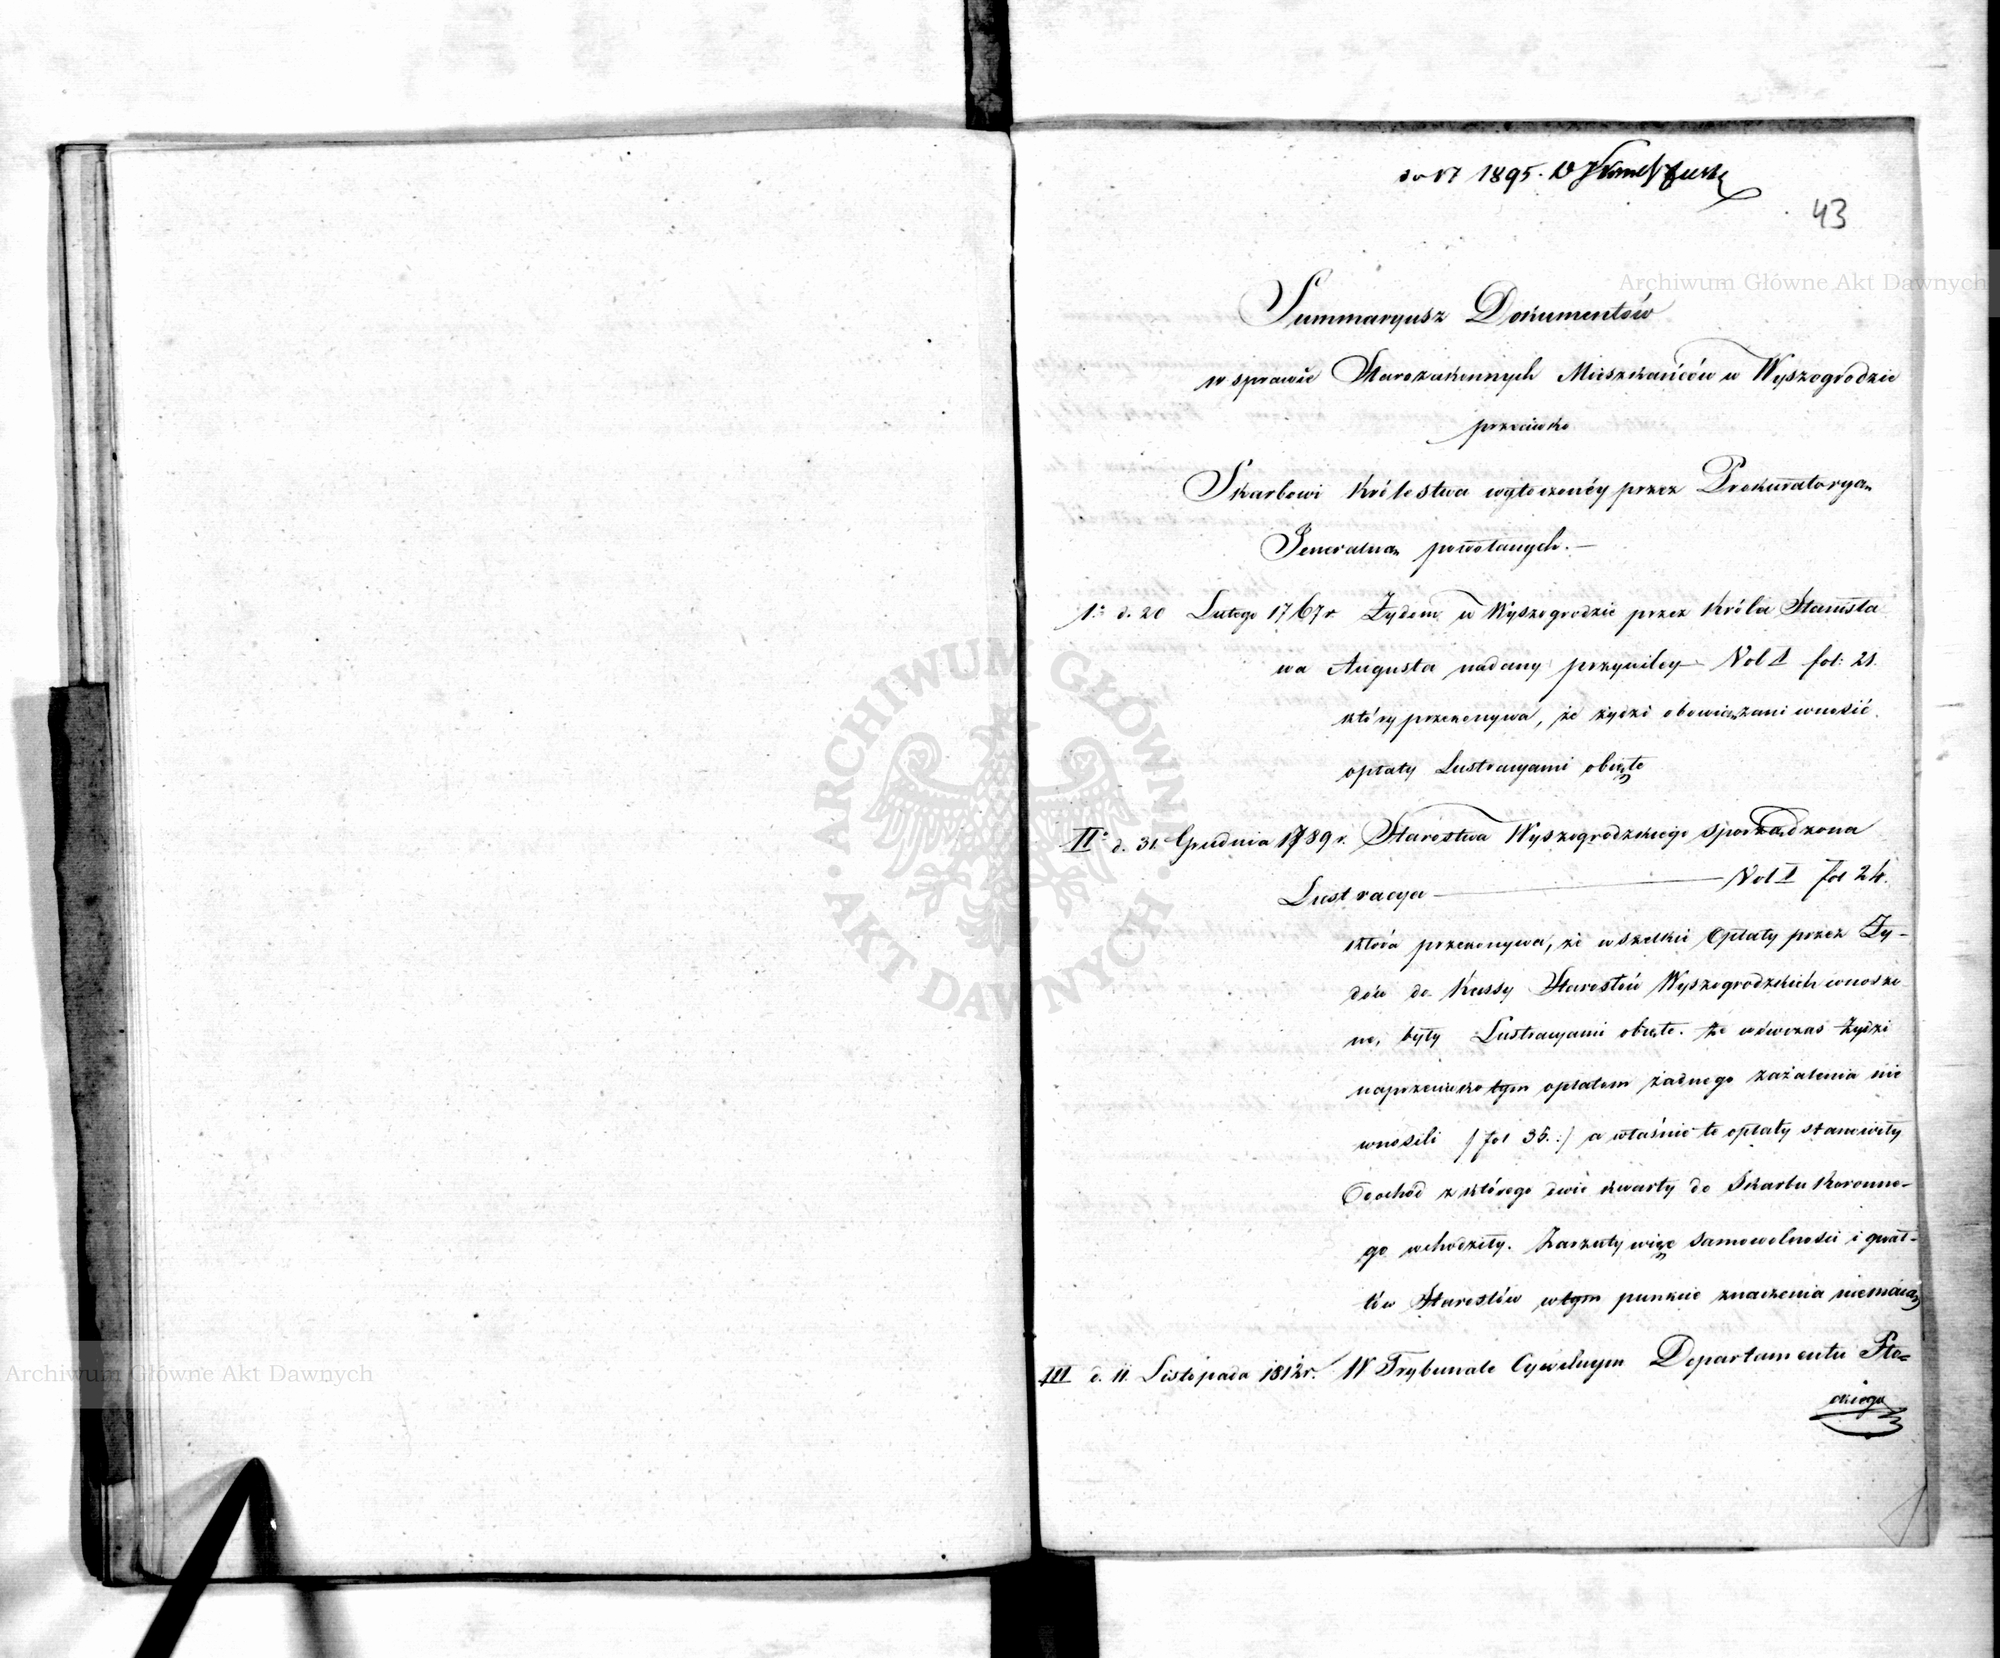 1895.
43
Archiwum Główne Akt Dawnych
Summaryusz Dokumentów
w sprawie Starozakonnych Mieszkańców w Wyszogrodzie
przeciwko
Skarbowi Królestwa wytoczonéy przez Prokuratoryą
Generalną powołanych. —
1.° d. 20 Lutego 1767 r. Żydom w Wyszogrodzie przez Króla Stanisła
wa Augusta nadany przywiley — Vol I fol: 21.
który przekonywa, że żydzi obowiązani wnosić
opłaty Lustracyami obięte
II° d. 31. Grudnia 1789 r. Starostwa Wyszogrodzkiego sporządzona
Lustracya — Vol I fol 24.
która przekonywa, że wszelkie Opłaty przez Ży-
dów do Kassy Starostów Wyszogrodzkich wnoszo
ne, były Lustracyami obięte. że wówczas Żydzi
naprzeciwko tym opłatom żadnego zażalenia nie
wnosili /fol 35.:/ a właśnie te opłaty stanowiły
Dochód z którego dwie kwarty do Skarbu Koronne-
go wchodziły. Zarzuty więc samowolności i gwał-
tów Starostów w tym punkcie znaczenia niemaią
III d. 11. Listopada 1812 r. W Trybunale Cywilnym Departamentu Pło=
ckiego
ARCHIWUM GŁÓWNE
· AKT DAWNYCH ·
Archiwum Główne Akt Dawnych